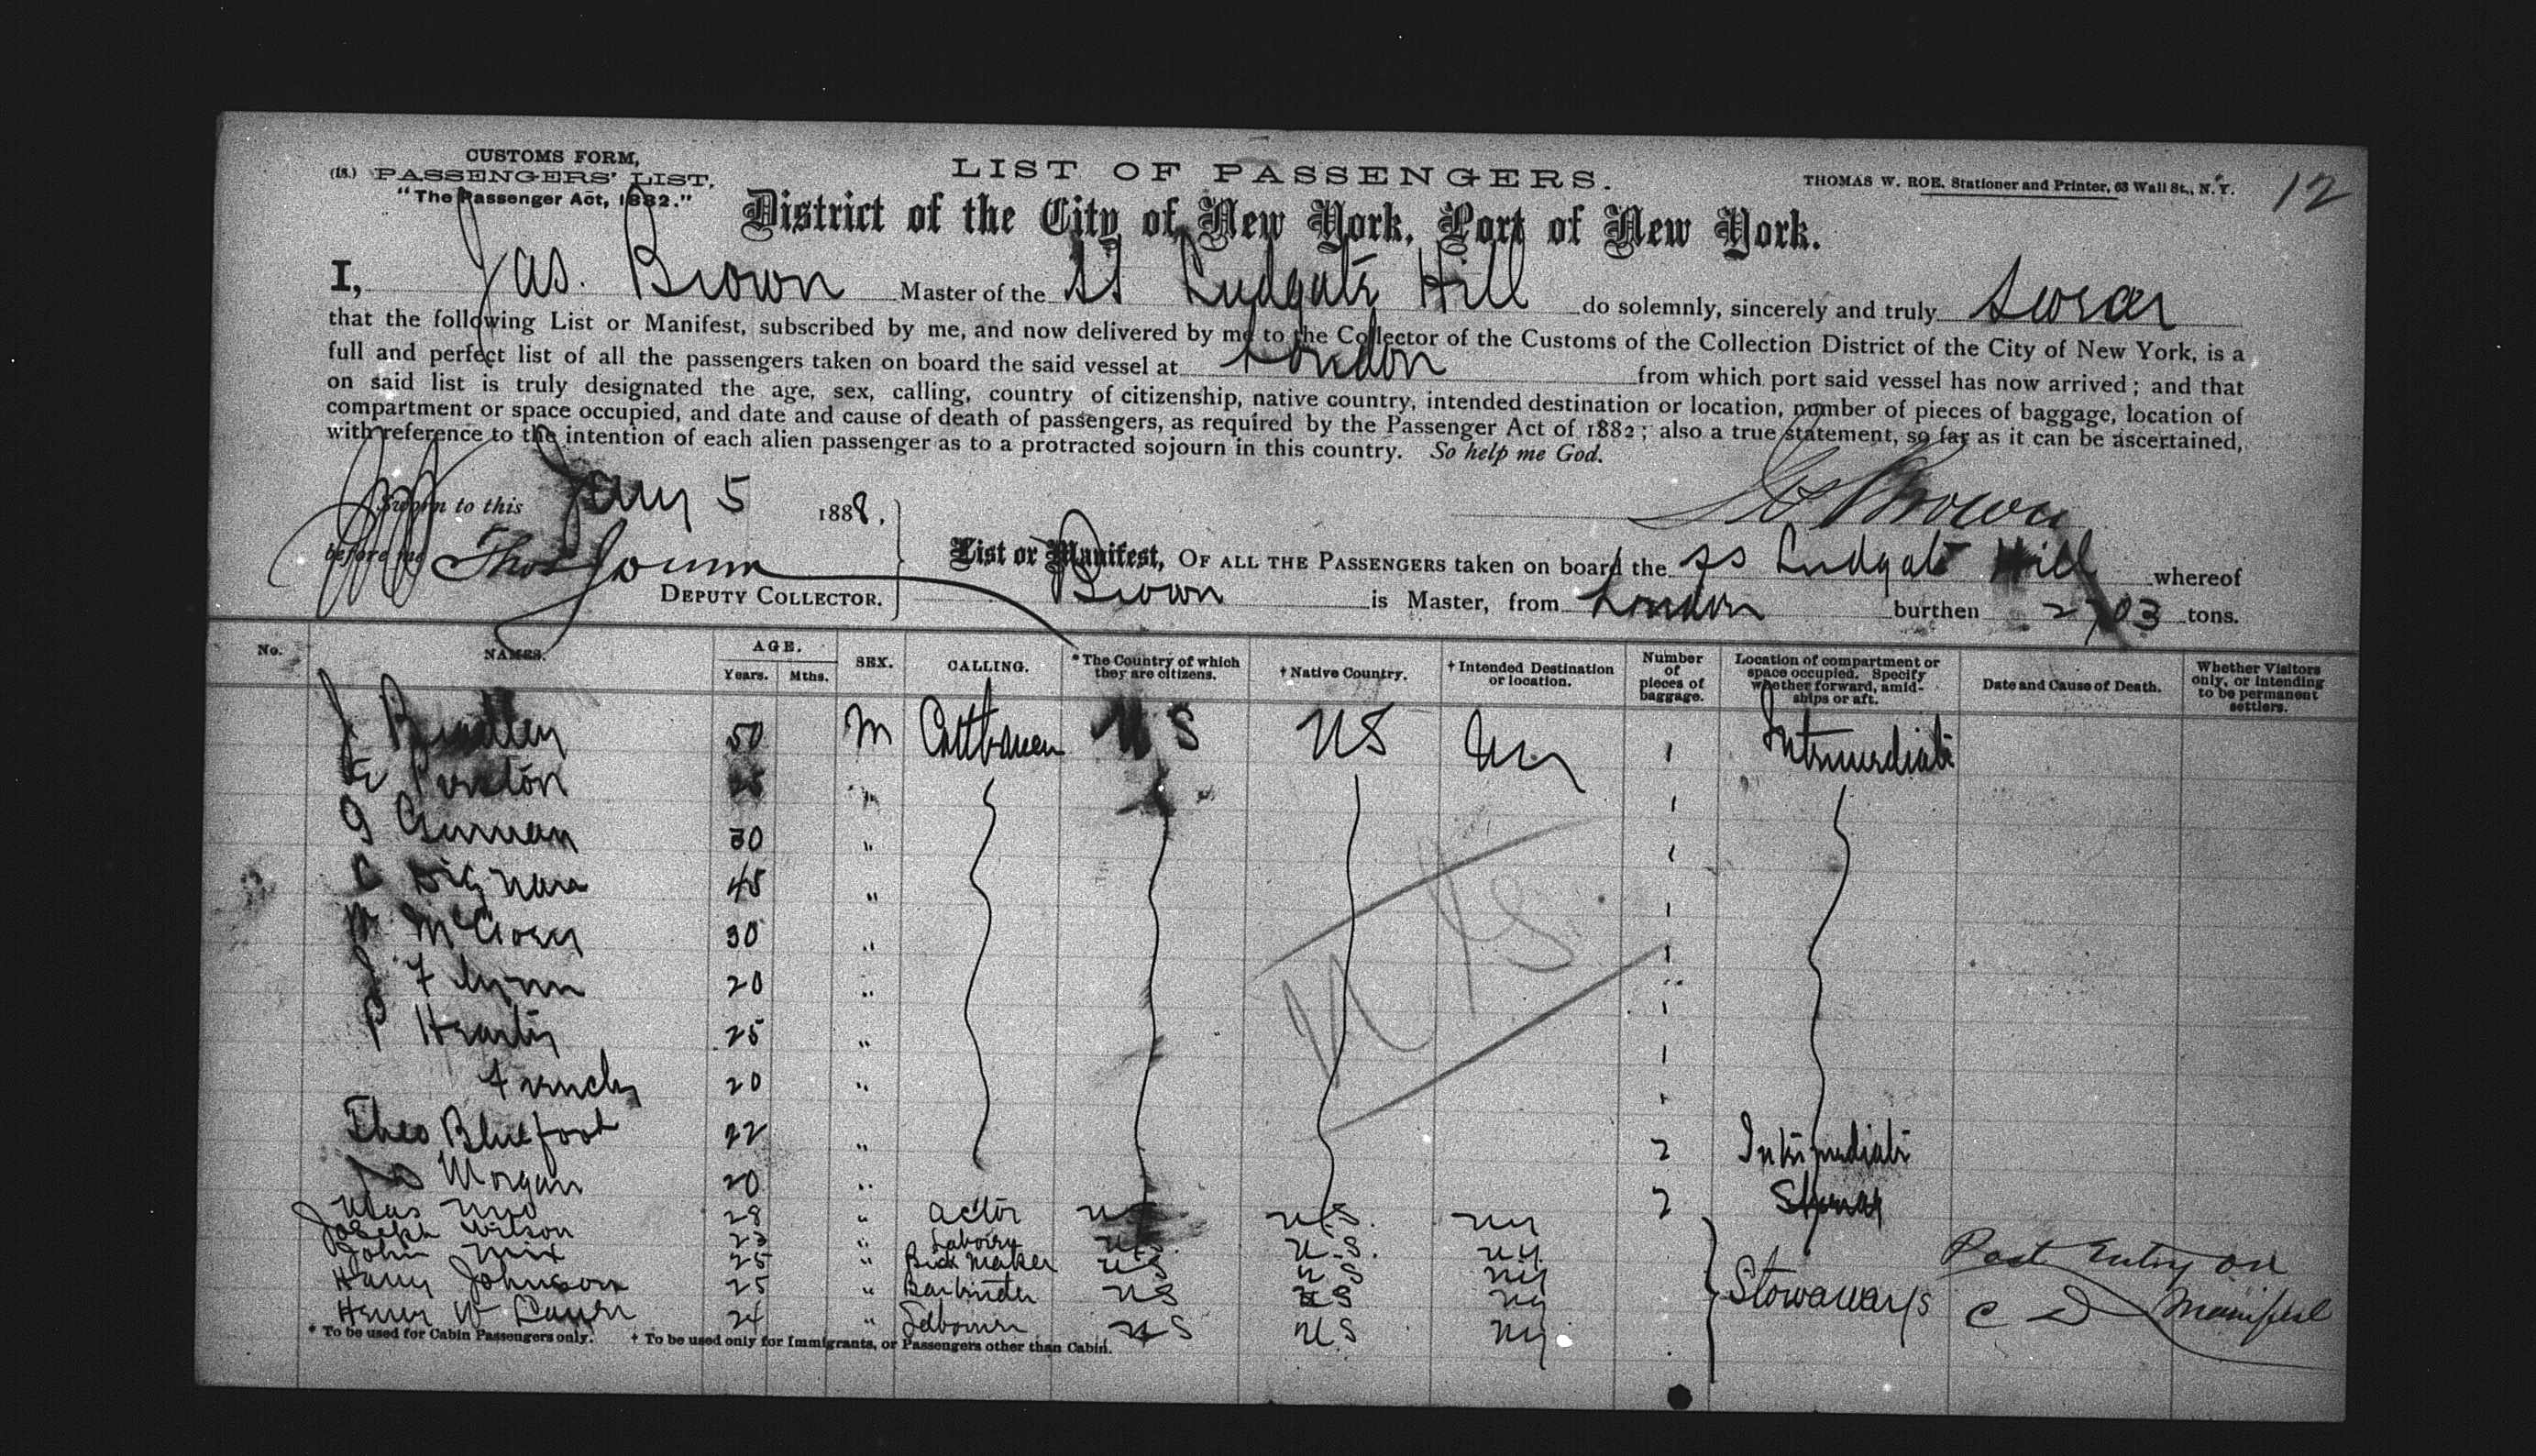 CUSTOMS FORM,
(18.) PASSENGERS' LIST,
"The Passenger Act, 1882."
LIST OF PASSENGERS.
THOMAS W. ROE, Stationer and Printer, 63 Wall St., N. Y.
12
District of the City of New York, Port of New York.
I, Jas. Brown Master of the SS Ludgate Hill do solemnly, sincerely and truly swear
that the following List or Manifest, subscribed by me, and now delivered by me to the Collector of the Customs of the Collection District of the City of New York, is a
full and perfect list of all the passengers taken on board the said vessel at London from which port said vessel has now arrived; and that
on said list is truly designated the age, sex, calling, country of citizenship, native country, intended destination or location, number of pieces of baggage, location of
compartment or space occupied, and date and cause of death of passengers, as required by the Passenger Act of 1882; also a true statement, so far as it can be ascertained,
with reference to the intention of each alien passenger as to a protracted sojourn in this country. So help me God.
Sworn to this Jany 5 1888,
Jas Brown
before me Thos
DEPUTY COLLECTOR.
List or Manifest, OF ALL THE PASSENGERS taken on board the SS Ludgate Hill whereof
Brown is Master, from London burthen 2703 tons.
No. NAMES. AGE. Years. Mths. SEX. CALLING. * The Country of which they are citizens. † Native Country. † Intended Destination or location. Number of pieces of baggage. Location of compartment or space occupied. Specify whether forward, amidships or aft. Date and Cause of Death. Whether Visitors only, or intending to be permanent settlers.
J Bradley 50 M Cattlemen US US NY 1 Intermediate
" 1
G 30 " 1
C Dignan 45 " 1
McGovey 30 " 1
J Flynn 20 " 1
P 25 " 1
French 20 " 1
Theo Bluefoot 22 " 2 Intermediate
Morgan 20 " 2 Steerage
28 " actor US U.S. NY
Joseph Wilson 23 " US. U.S. NY
John Mix 25 " Brick Maker US US NY
Harry Johnson 25 " Bartender US US NY
Henry W 24 " US US NY
Stowaways
Post Entry on
C D Manifest
N YS
* To be used for Cabin Passengers only. † To be used only for Immigrants, or Passengers other than Cabin.